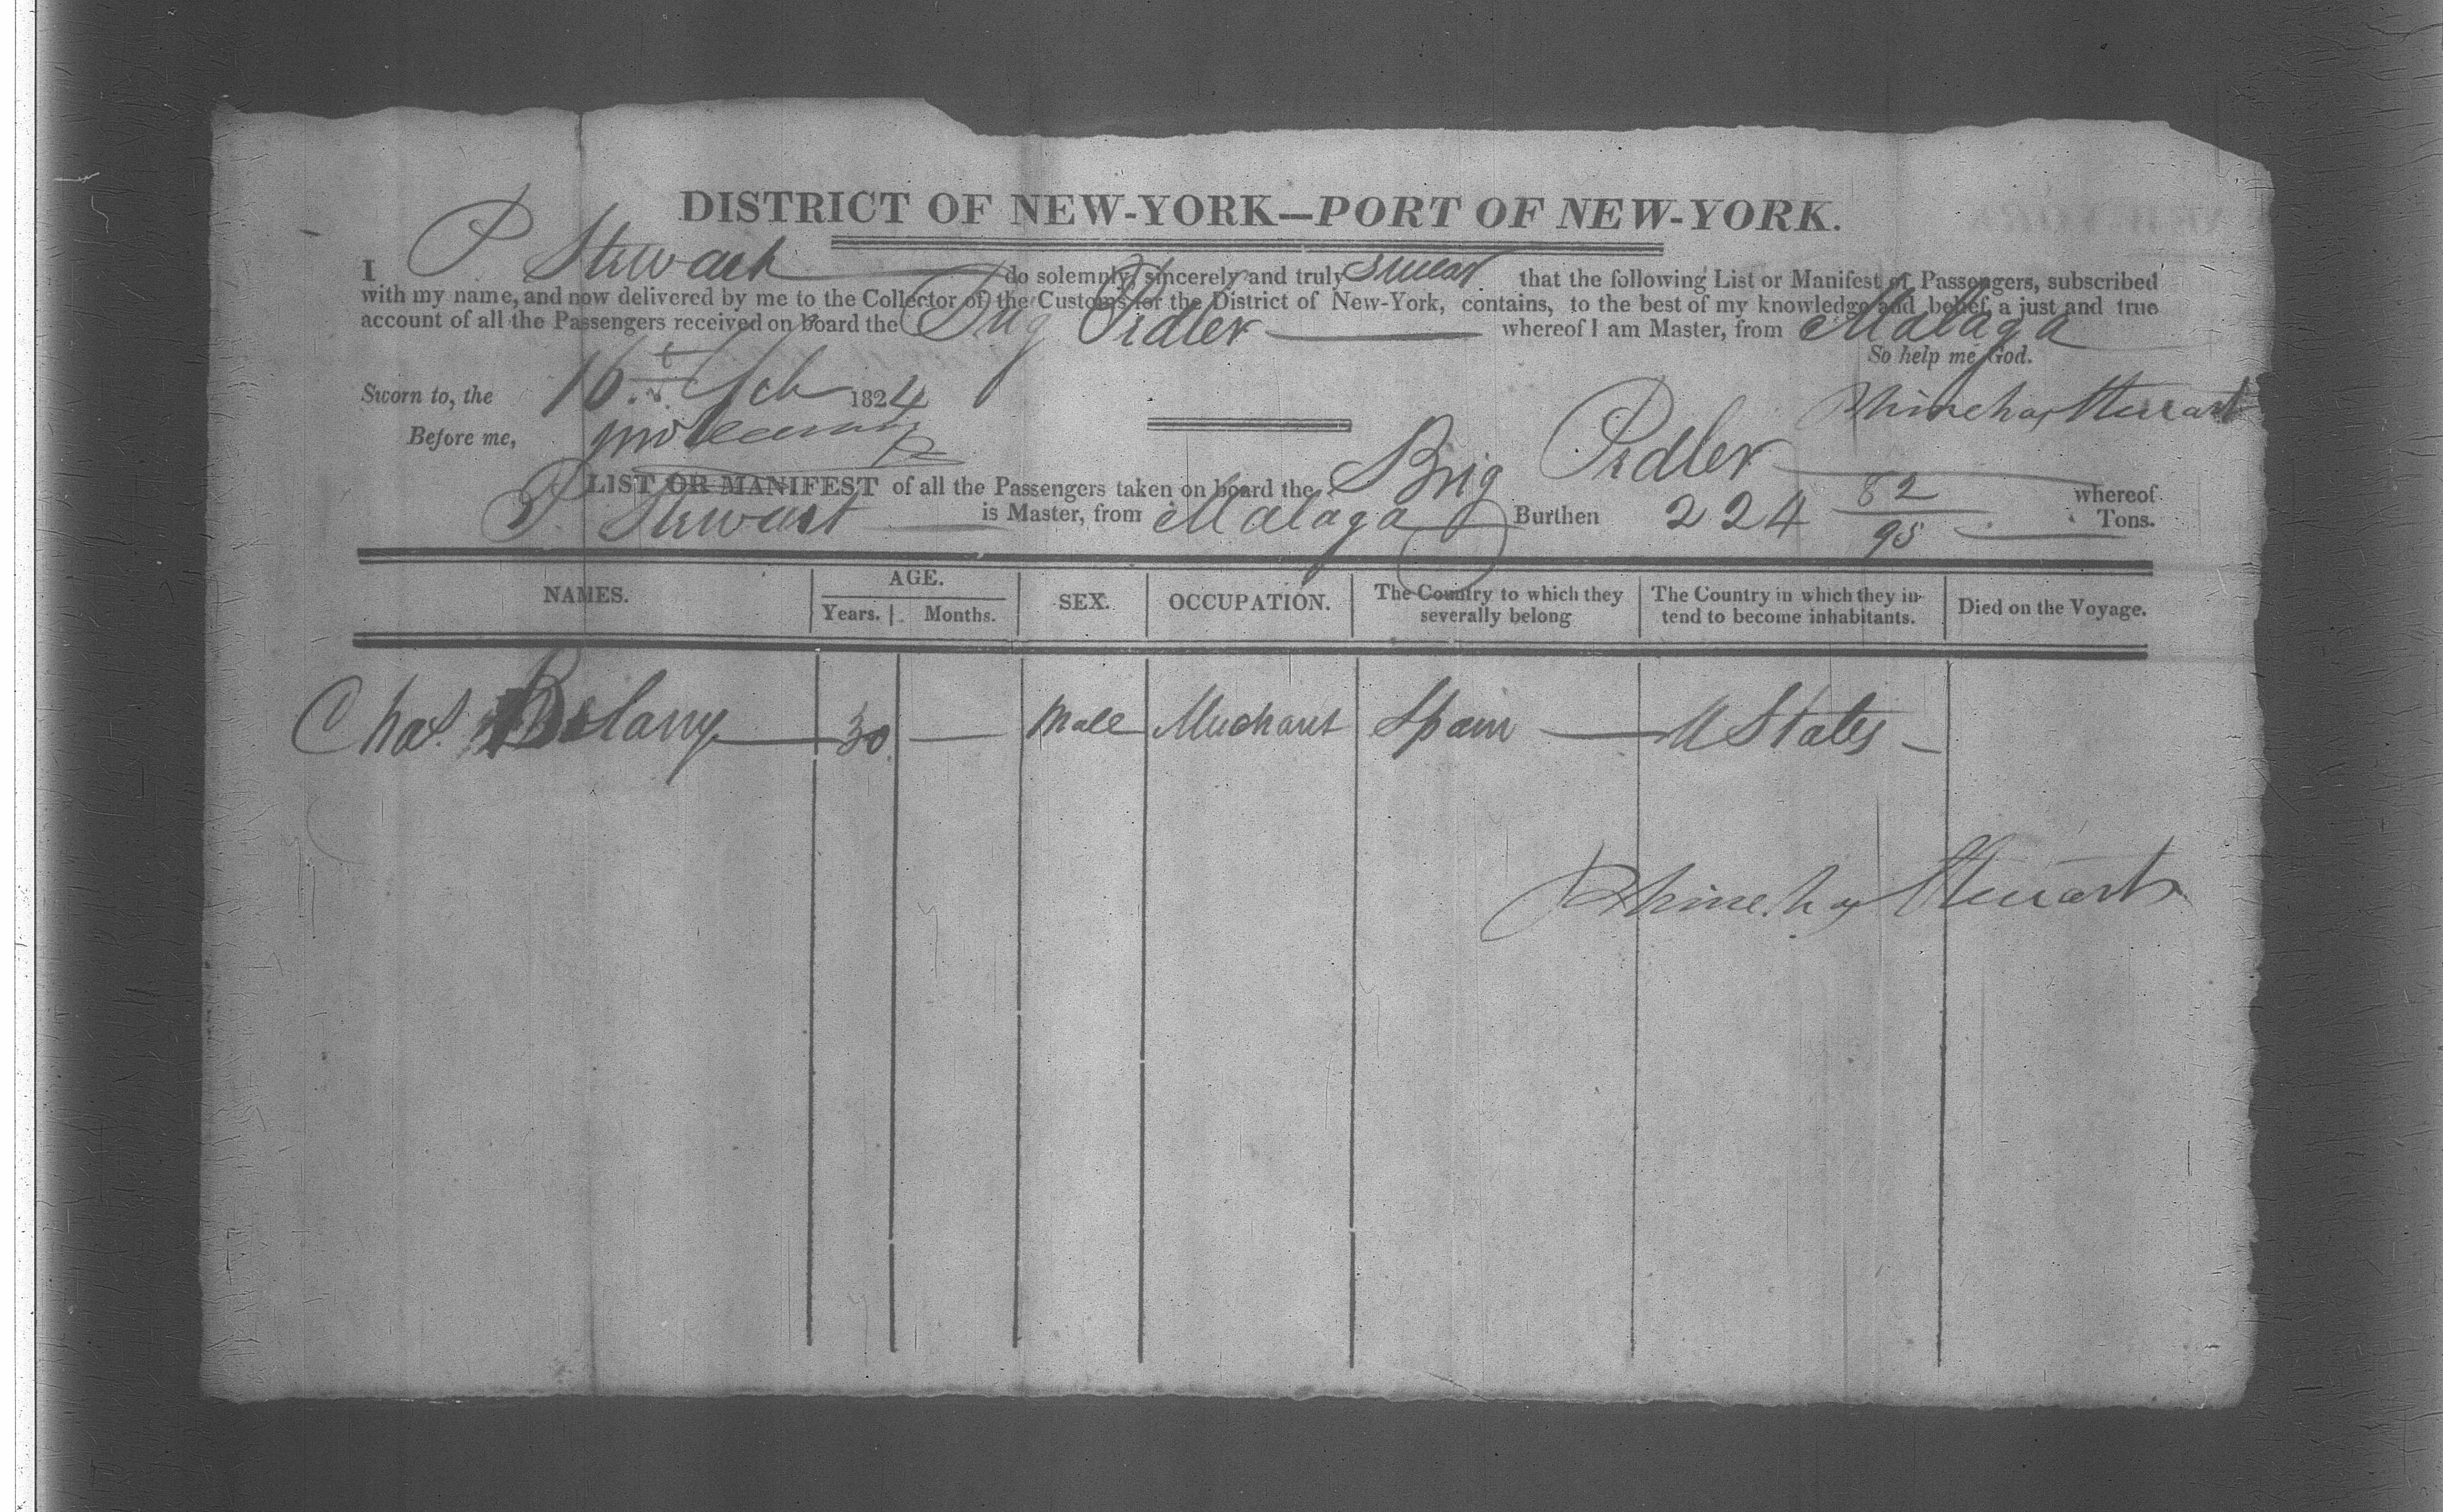 DISTRICT OF NEW-YORK—PORT OF NEW-YORK.
I P Stewart do solemnly, sincerely and truly swear that the following List or Manifest of Passengers, subscribed
with my name, and now delivered by me to the Collector of the Customs for the District of New-York, contains, to the best of my knowledge and belief, a just and true
account of all the Passengers received on board the Brig Pedler whereof I am Master, from Malaga
So help me God.
Sworn to, the 16.t Feb 1824
Stewart
Before me,
LIST OR MANIFEST of all the Passengers taken on board the Brig Pedler whereof
P. Stewart is Master, from Malaga Burthen 224 82/95 Tons.
NAMES. AGE. Years. Months. SEX. OCCUPATION. The Country to which they severally belong The Country in which they intend to become inhabitants. Died on the Voyage.
Chas. 30 — Male Merchant Spain — U States —
Stewart